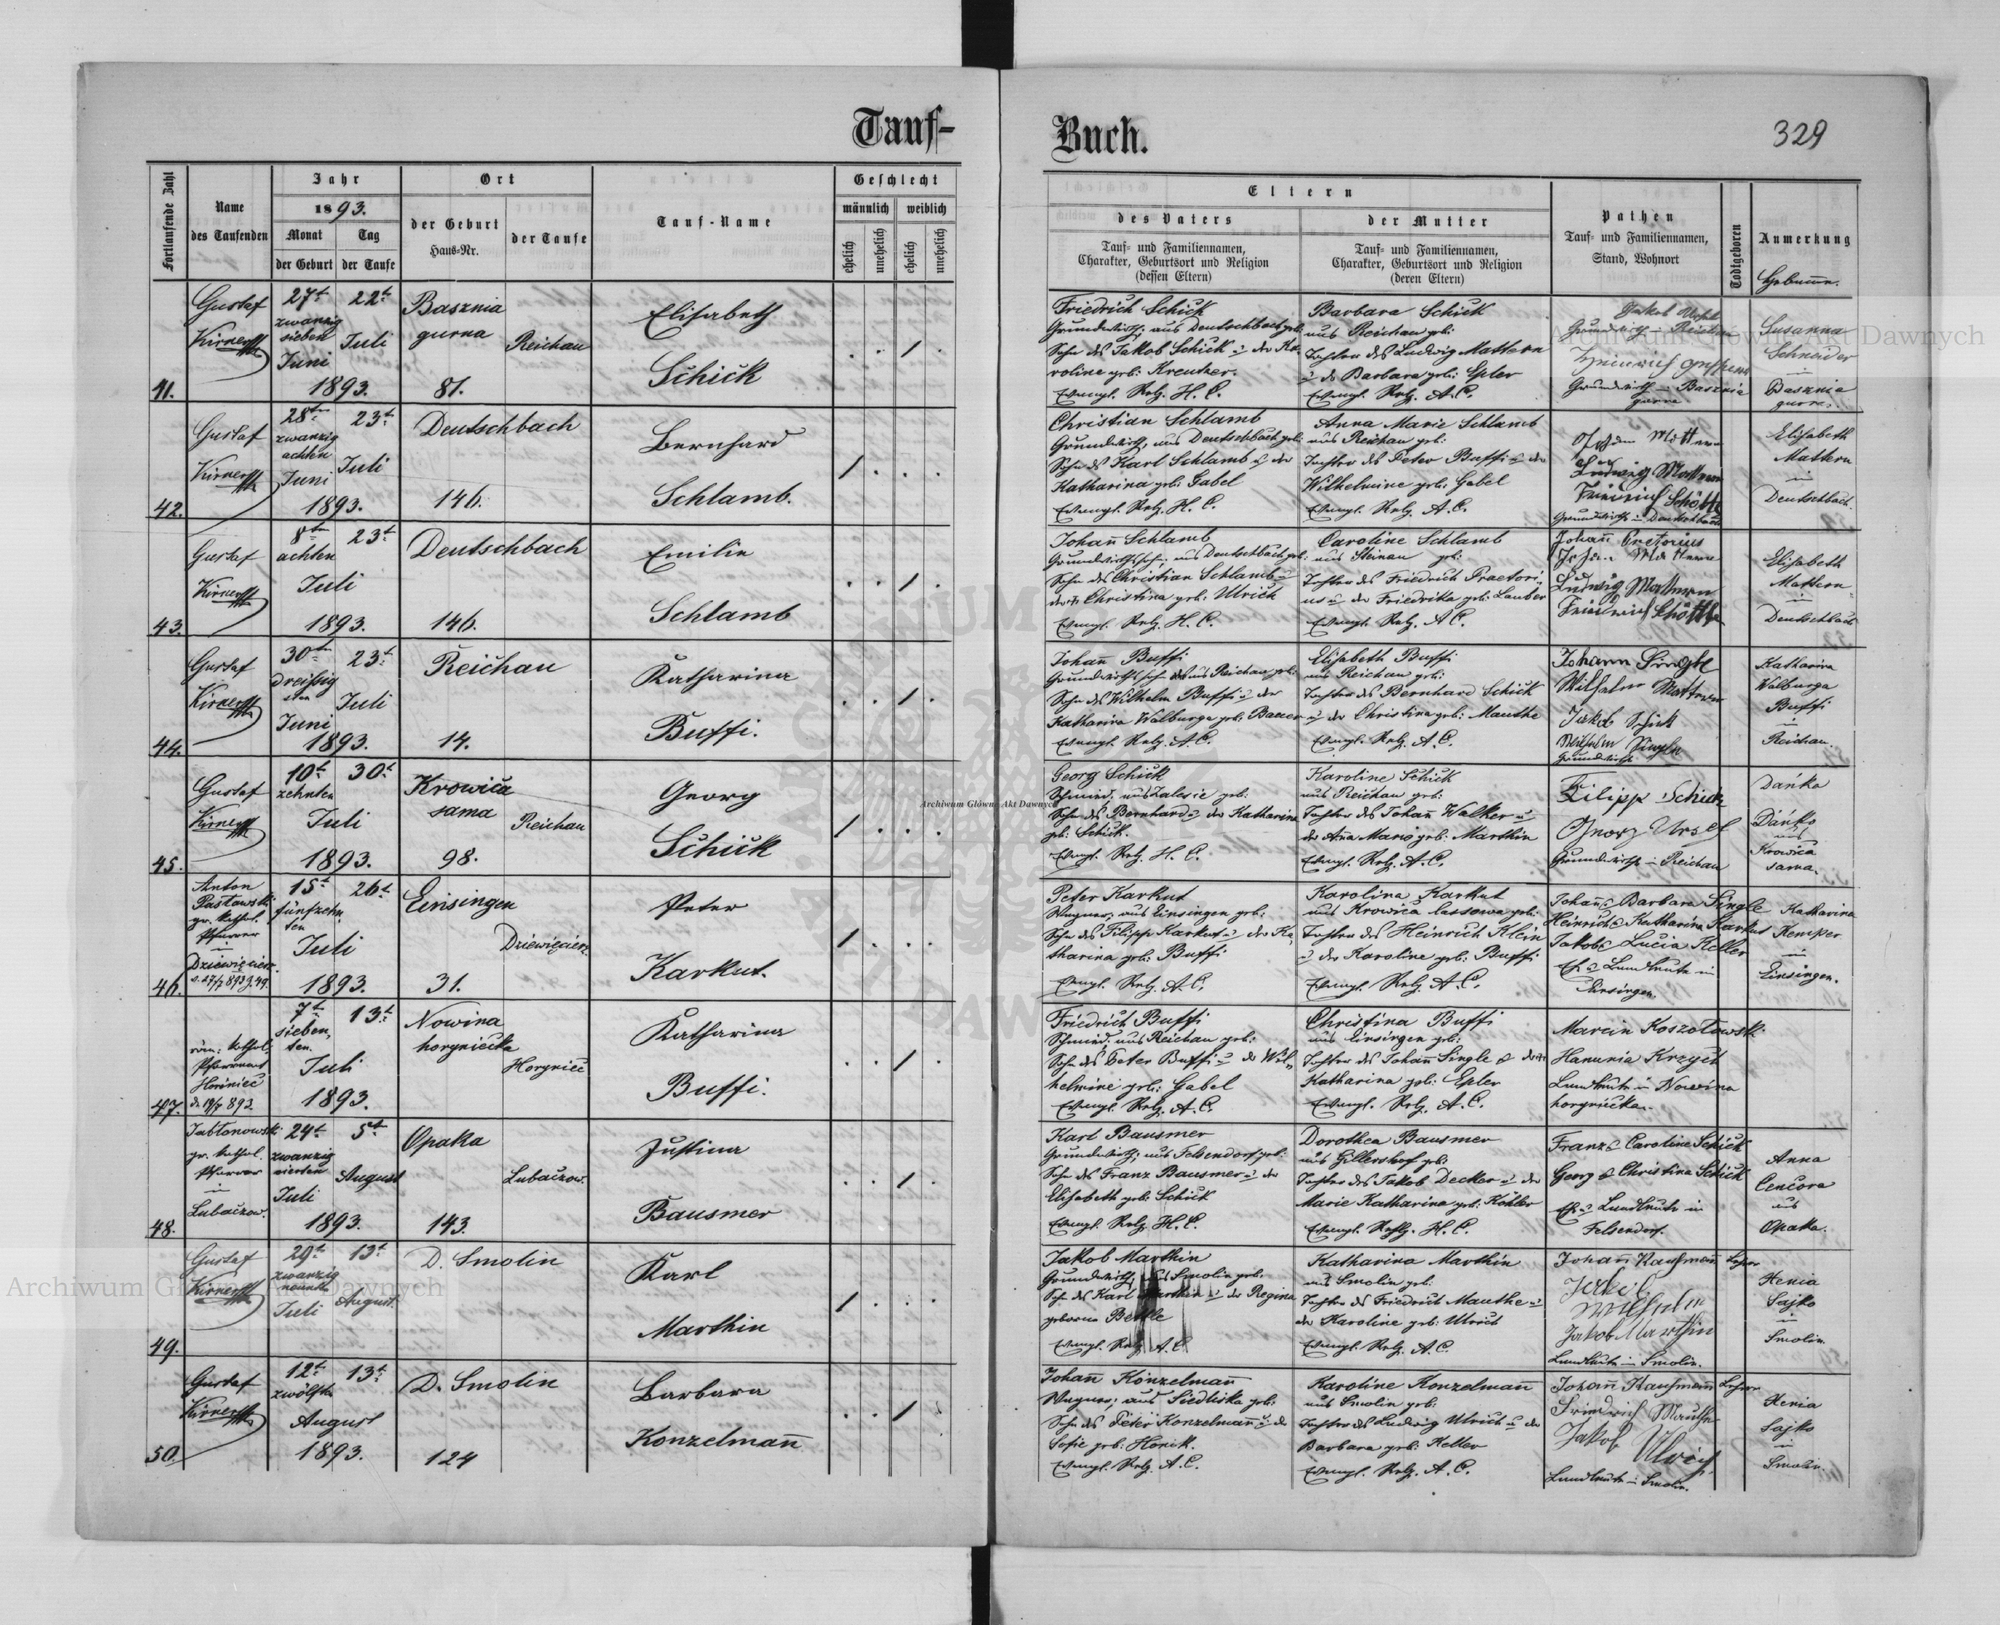 Tauf-
Fortlaufende Zahl
Name
des Taufenden
Jahr
1893.
Monat
der Geburt
Tag
der Taufe
Ort
der Geburt
Haus-Nr.
der Taufe
Tauf-Name
Geschlecht
männlich
weiblich
ehelich
unehelich
ehelich
unehelich
41.
Gustaf
27t
22t
zwanzig
sieben
Juni
Juli
1893.
Basznia
gurna
Reichau
81.
Elisabeth
Schick
42.
Gustaf
28t
23t
zwanzig
achten
Juni
Juli
1893.
Deutschbach
146.
Bernhard
Schlamb.
43.
Gustaf
8t
23t
achten
Juli
1893.
Deutschbach
146.
Emilie
Schlamb
44.
Gustaf
30t
23t
dreißig
sten
Juli
Juni
1893.
Reichau
14.
Katharina
Buffi.
45.
Gustaf
10t
30t
zehnten
Juli
1893.
Krowica
sama
Reichau
98.
Georg
Schick
46.
Anton
Pastawski
gr. kathol.
Pfarrer
in
15t
26t
fünfzehn
ten
Juli
1893.
Einsingen
31.
Peter
Karkut.
47.
röm: kathol.
Pfarramt
7t
13t
sieben
ten
Juli
1893.
Nowina
horyniecka
Horyniec
Katharina
Buffi.
48.
Jabłonowski
gr. kathol.
Pfarrer
in
Lubaczow.
24t
5t
zwanzig
vierten
August
Juli
1893.
Opaka
Lubaczow.
143.
Justina
Bausmer
49.
Gustaf
29t
13t
zwanzig
neunten
Juli
August
D. Smolin
Karl
Marthin
50.
Gustaf
12t
13t
zwölften
August
1893.
D. Smolin
124
Barbara
Konzelmann
Buch.
329
Eltern
des Vaters
Tauf- und Familiennamen,
Charakter, Geburtsort und Religion
(dessen Eltern)
der Mutter
Tauf- und Familiennamen,
Charakter, Geburtsort und Religion
(deren Eltern)
Pathen
Tauf- und Familiennamen,
Stand, Wohnort
Todtgeboren
Anmerkung
Friedrich Schick
Grundwirth aus Deutschbach geb:
Sohn des Jakob Schick u. der Ka-
roline geb: Kreutzer.
Evangl. Relg. H. C.
Barbara Schick
aus Reichau geb:
Tochter des Ludwig Mattern
u. der Barbara geb: Epler
Evangl. Relg. A. C.
Susanna
Schneider
in
Basznia
gurna.
Christian Schlamb
Grundwirth aus Deutschbach geb:
Sohn des Karl Schlamb u. der
Katharina geb: Gabel
Evangl. Relg. H. C.
Anna Marie Schlamb
aus Reichau geb:
Tochter des Peter Buffi u. der
Wilhelmine geb: Gabel
Evangl. Relg. A. C.
Ludwig Mattern
Grundwirth in Deutschbach
Elisabeth
Mattern
in
Deutschbach.
Johann Schlamb
Sohn des Christian Schlamb u.
der Christina geb: Ulrich
Evangl. Relg. H. C.
Caroline Schlamb
Tochter des Friedrich Praetori-
us u. der Friedrika geb: Lauber
Evangl. Relg. A C.
Ludwig Mattern
Elisabeth
Mattern
in
Deutschbach
Johann Buffi
Sohn des Wilhelm Buffi u. der
Katharina Walburga geb: Bauer
Evangl. Relg. A. C.
Elisabeth Buffi
aus Reichau geb:
Tochter des Bernhard Schick
u. der Christina geb: Mauthe
Evangl. Relg. A. C.
Wilhelm Mattern
Jakob Schick
Katharina
Walburga
Buffi
in
Reichau.
Georg Schick
Schmied, aus Zalesie geb:
Sohn des Bernhard u. der Katharina
geb: Schick.
Evangl. Relg. H. C.
Karoline Schick
aus Reichau geb:
Tochter des Johann Walker u.
der Ana Marie geb: Marthin
Evangl. Relg. A. C.
Filipp Schick
Grundwirthe in Reichau
Dańko
Dańko
aus
Krowica
sama.
Peter Karkut
Wagner, aus Einsingen geb:
Sohn des Filipp Karkut u. der Ka-
tharina geb: Buffi
Evangl. Relg. A. C.
Karolina Karkut
aus Krowica lassowa geb:
Tochter des Heinrich Klein
u. der Karoline geb: Buffi
Evangl. Relg. A. C.
Johann & Barbara Single
Heinrich & Katharina Karkut
Jakob & Lucia Keller
Einsingen.
Katharina
Kemper
in
Einsingen.
Friedrich Buffi
Schmied, aus Reichau geb:
Sohn des Peter Buffi u. der Wil-
helmine geb: Gabel
Evangl. Relg. A. C.
Christina Buffi
aus Einsingen geb:
Tochter des Johann Single & der
Katharina geb: Epler
Evangl. Relg. A. C.
Marcin Koszołowski
Hanunia Krzych
Landleute in Nowina
horyniecka.
Karl Bausmer
Grundwirth aus Felsendorf geb:
Sohn des Franz Bausmer u. der
Elisabeth geb: Schick
Evangl. Relg. H. C.
Dorothea Bausmer
aus Gillershof geb:
Tochter des Jakob Decker u. der
Marie Katharina geb: Köhler
Evangl. Relg. H. C.
Franz & Caroline Schick
Georg & Christina Schick
Landleute in
Felsendorf.
Anna
Cencora
aus
Opaka.
Jakob Marthin
Grundwirth aus Smolin geb:
Sohn des Karl Marthin u. der Regina
geborne Bettle
Evangl. Relg. A. C.
Katharina Marthin
aus Smolin geb:
Tochter des Friedrich Mauthe u.
der Karoline geb: Ulrich
Evangl. Relg. A. C.
Johann Kaufmann Lehrer
Jakob Marthin
Landleute in Smolin.
Henia
Sajko
in
Smolin.
Johann Konzelmann
Wagner, aus Siedliska geb:
Sohn des Peter Konzelmann u. der
Sofie geb: Honik.
Evangl. Relg. A. C.
Karoline Konzelmann
aus Smolin geb:
Tochter des Ludwig Ulrich u. der
Barbara geb: Keller
Evangl. Relg. A. C.
Johann Kaufmann Lehrer
Friedrich Mauthe
Jakob Ulrich
Landleute in Smolin.
Henia
Sajko
in
Smolin.
Archiwum Główne Akt Dawnych
Archiwum Główne Akt Dawnych
Archiwum Główne Akt Dawnych